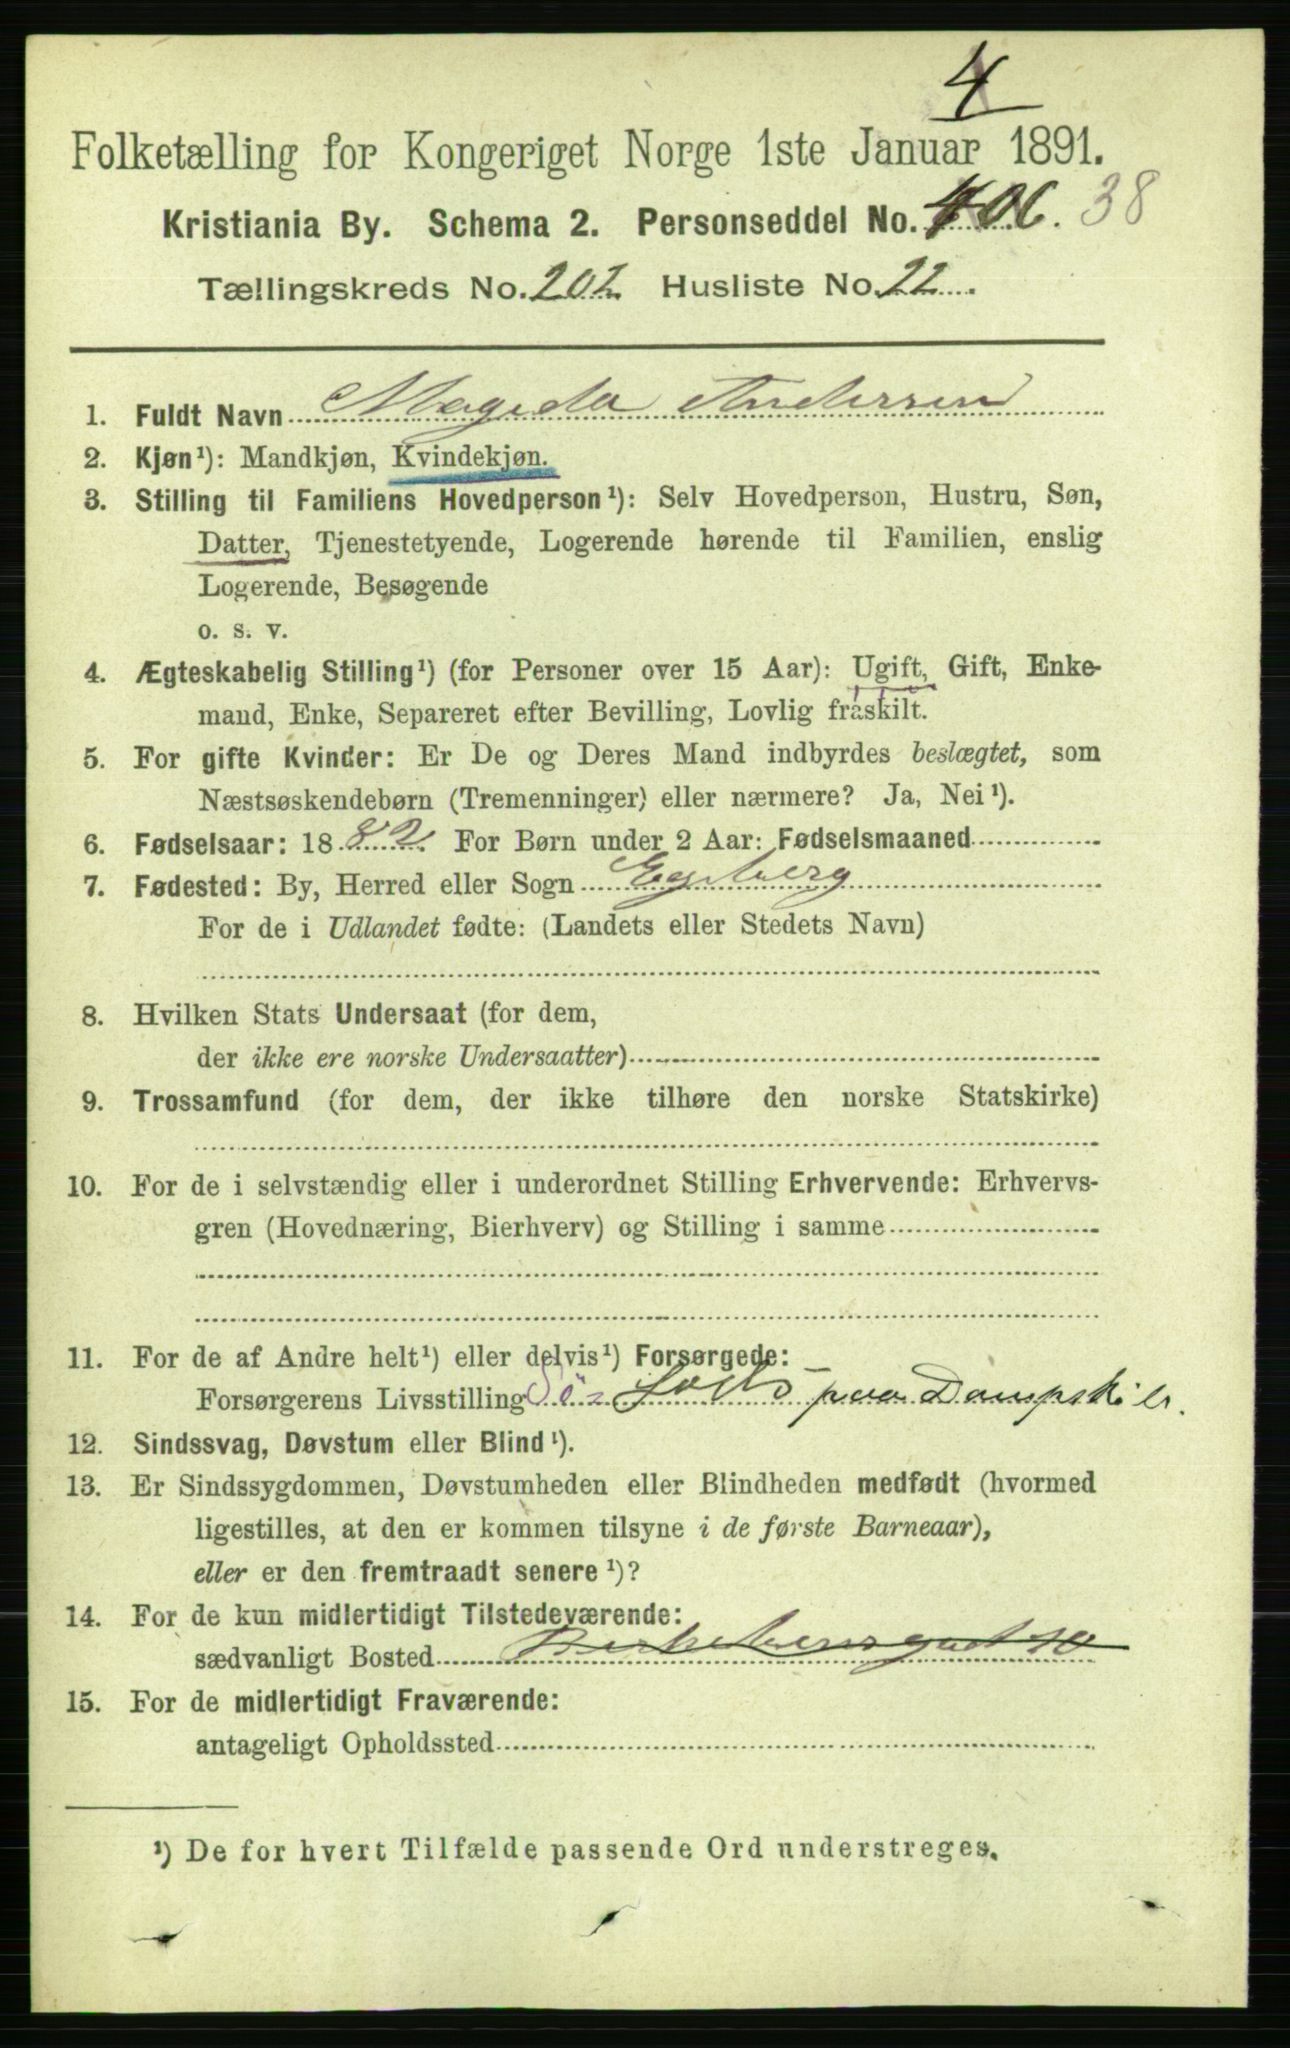 4
Folketælling for Kongeriget Norge 1ste Januar 1891.
Kristiania By. Schema 2. Personseddel No. 406. 38
Tællingskreds No. 202 Husliste No. 22.
1. Fuldt Navn Magda Andersen
2. Kjøn¹): Mandkjøn, Kvindekjøn.
3. Stilling til Familiens Hovedperson¹): Selv Hovedperson, Hustru, Søn,
Datter, Tjenestetyende, Logerende hørende til Familien, enslig
Logerende, Besøgende
o. s. v.
4. Ægteskabelig Stilling¹) (for Personer over 15 Aar): Ugift, Gift, Enke-
mand, Enke, Separeret efter Bevilling, Lovlig fraskilt.
5. For gifte Kvinder: Er De og Deres Mand indbyrdes beslægtet, som
Næstsøskendebørn (Tremenninger) eller nærmere? Ja, Nei¹).
6. Fødselsaar: 1882 For Børn under 2 Aar: Fødselsmaaned
7. Fødested: By, Herred eller Sogn Egeberg
For de i Udlandet fødte: (Landets eller Stedets Navn)
8. Hvilken Stats Undersaat (for dem,
der ikke ere norske Undersaatter)
9. Trossamfund (for dem, der ikke tilhøre den norske Statskirke)
10. For de i selvstændig eller i underordnet Stilling Erhvervende: Erhvervs-
gren (Hovednæring, Bierhverv) og Stilling i samme
11. For de af Andre helt¹) eller delvis¹) Forsørgede:
Forsørgerens Livsstilling Sø- Lods paa Dampskib.
12. Sindssvag, Døvstum eller Blind¹).
13. Er Sindssygdommen, Døvstumheden eller Blindheden medfødt (hvormed
ligestilles, at den er kommen tilsyne i de første Barneaar),
eller er den fremtraadt senere¹)?
14. For de kun midlertidigt Tilstedeværende:
sædvanligt Bosted Birkebeinergad 10
15. For de midlertidigt Fraværende:
antageligt Opholdssted
¹) De for hvert Tilfælde passende Ord understreges.